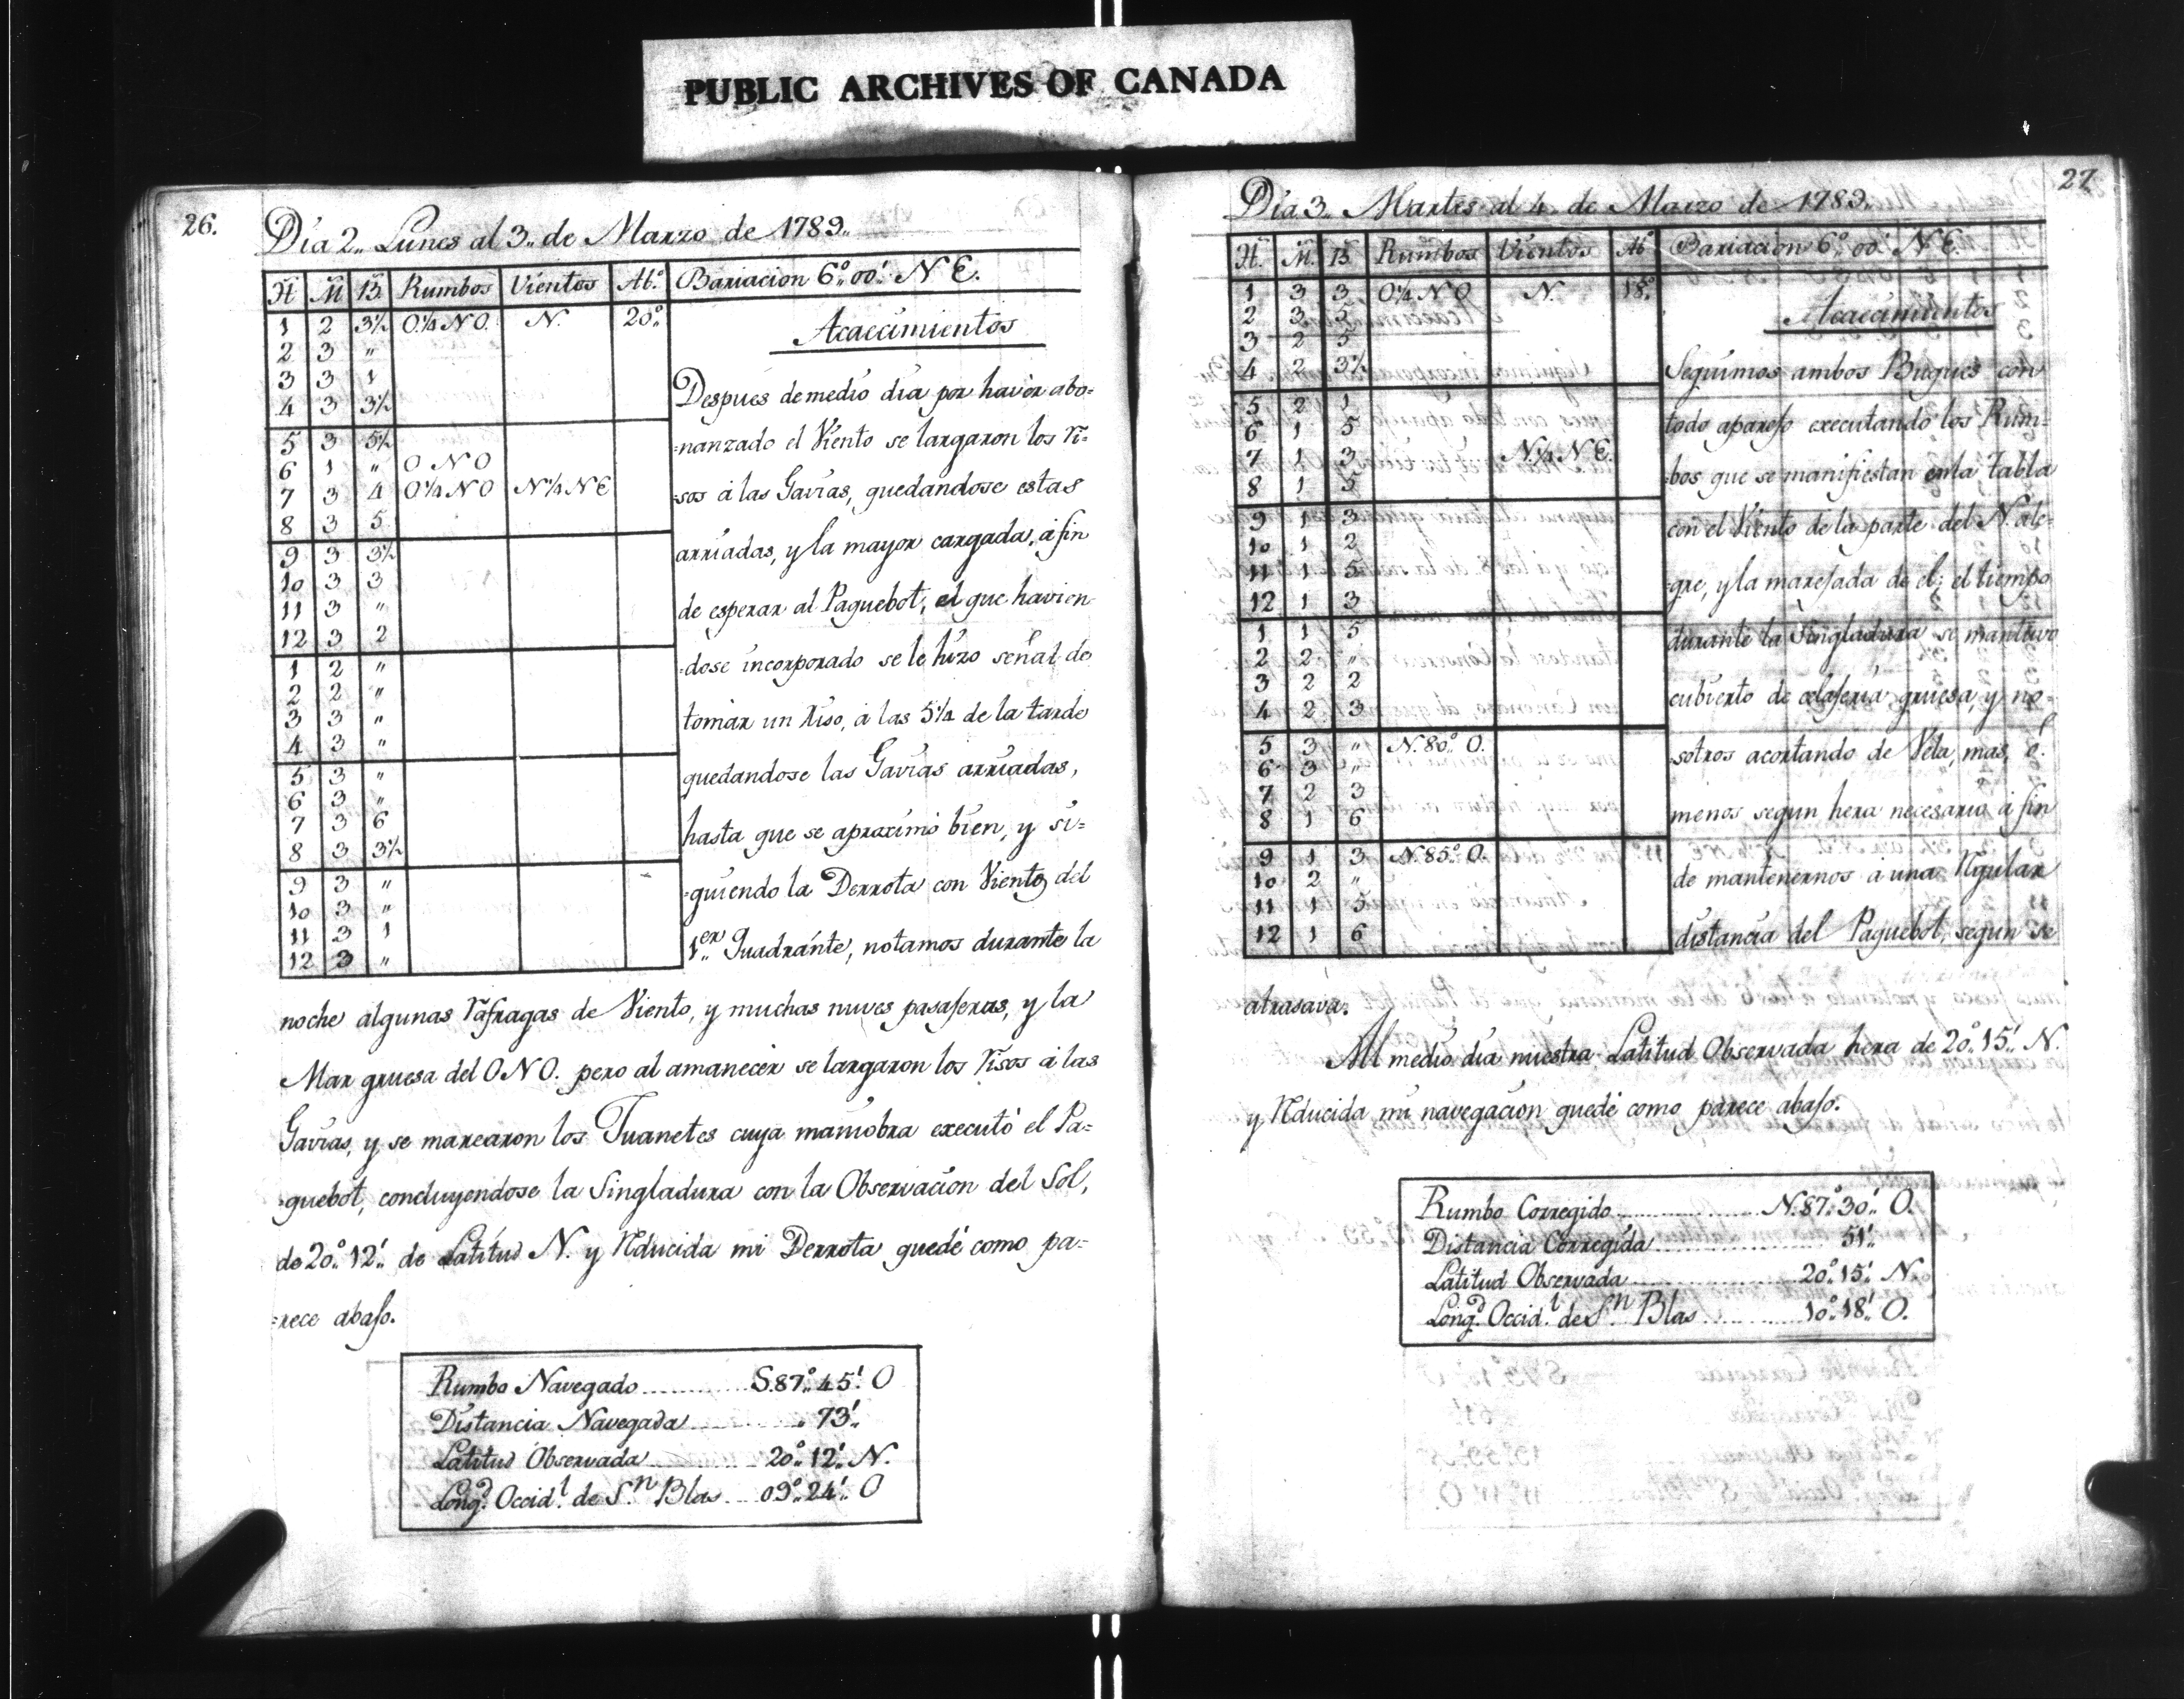 PUBLIC ARCHIVES OF CANADA
26.
Dia 2,, Lunes al 3,, de Marzo de 1789,,
H M B. Rumbos Vientos Ab.º Bariacion 6º,, 00',, N E.
1 2 3½ O¼NO. N. 20º,,
2 3 "
3 3 1
4 3 3½
5 3 5½
6 1 " O N O
7 3 4 O¼NO N¼NE
8 3 5
9 3 3½
10 3 3
11 3 "
12 3 2
1 2 "
2 2 "
3 3 "
4 3 "
5 3 "
6 3 "
7 3 6
8 3 3½
9 3 "
10 3 "
11 3 1
12 3 "
Acaecimientos
Despues de medio dia por haver abo=
=nanzado el Viento se largaron los ri=
=sos á las Gavias, quedandose estas
arriadas, y la mayor cargada, á fin
de esperar al Paquebot, el que havien
=dose incorporado se le hizo señal de
tomar un Riso, á las 5¼ de la tarde
quedandose las Gavias arriadas,
hasta que se aproximó bien, y si=
=guiendo la Derrota con Viento del
1.er Quadrante, notamos durante la
noche algunas rafragas de Viento, y muchas nuves pasajeras, y la
Mar gruesa del ONO. pero al amanecer se largaron los Risos á las
Gavias, y se marearon los Juanetes cuya maniobra executó el Pa=
=quebot, concluyendose la Singladura con la Observacion del Sol,
de 20º,, 12',, de Latitud N. y Rducida mi Derrota quedé como pa=
=rece abajo.
Rumbo Navegado ............ S.87º,, 45',, O
Distancia Navegada ............ ,, 73',,
Latitud Observada ............ 20º,, 12',, N.
Long.d Occid.l de S.n Blas .... 09º,, 24',, O
27
Dia 3,, Martes al 4 de Marzo de 1789,,
H. M. B. Rumbos Vientos Ab.º Bariacion 6º,, 00',, N E.
1 3 3 O¼NO N. 18º,,
2 3 5
3 2 5
4 2 3½
5 2 1
6 1 5
7 1 3 N.¼NE.
8 1 5
9 1 3
10 1 2
11 1 5
12 1 3
1 1 5
2 2 "
3 2 2
4 2 3
5 3 " N.80º,, O.
6 3 "
7 2 3
8 1 6
9 1 3 N.85º,, O.
10 2 "
11 1 5
12 1 6
Acaecimientos
Seguimos ambos Buques con
todo aparejo executando los Rum=
=bos que se manifiestan en la tabla
con el Viento de la parte del N. ale=
=gre, y la marejada de el; el tiempo
durante la Singladura se mantuvo
cubierto de celajeria gruesa, y no=
=sotros acortando de Vela, mas, ó
menos segun hera necesario á fin
de mantenernos á una Rgular
distancia del Paquebot, segun se
atrasava.
Al medio dia nuestra Latitud Observada hera de 20º,, 15',, N.
y Rducida mi navegacion quedé como parece abajo.
Rumbo Corregido ............ N.87º,, 30',, O.
Distancia Corregida ............ 51',,
Latitud Observada ............ 20º,, 15',, N.
Long.d Occid.l de S.n Blas ............ 10º,, 18',, O.